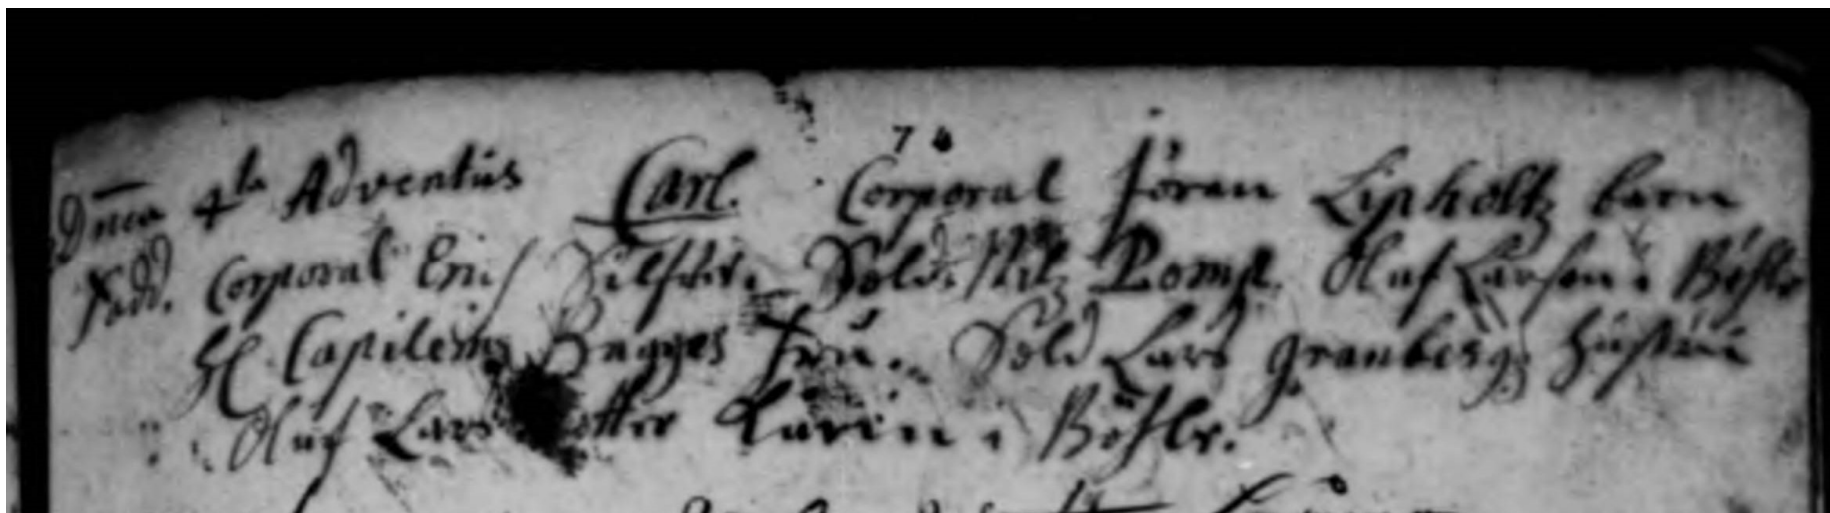 74
Dnica 4ta Adventus Carl. Corporal Jöran Lipholtz barn
Fadd. Corporal Eric Silfver. Sold. Nilz Pomp. Oluf Larson i Böhle
H Capitens Bagges Fru. Sold Lars Granbergz hustru
Oluf Lars dotter Karin i Böhle.